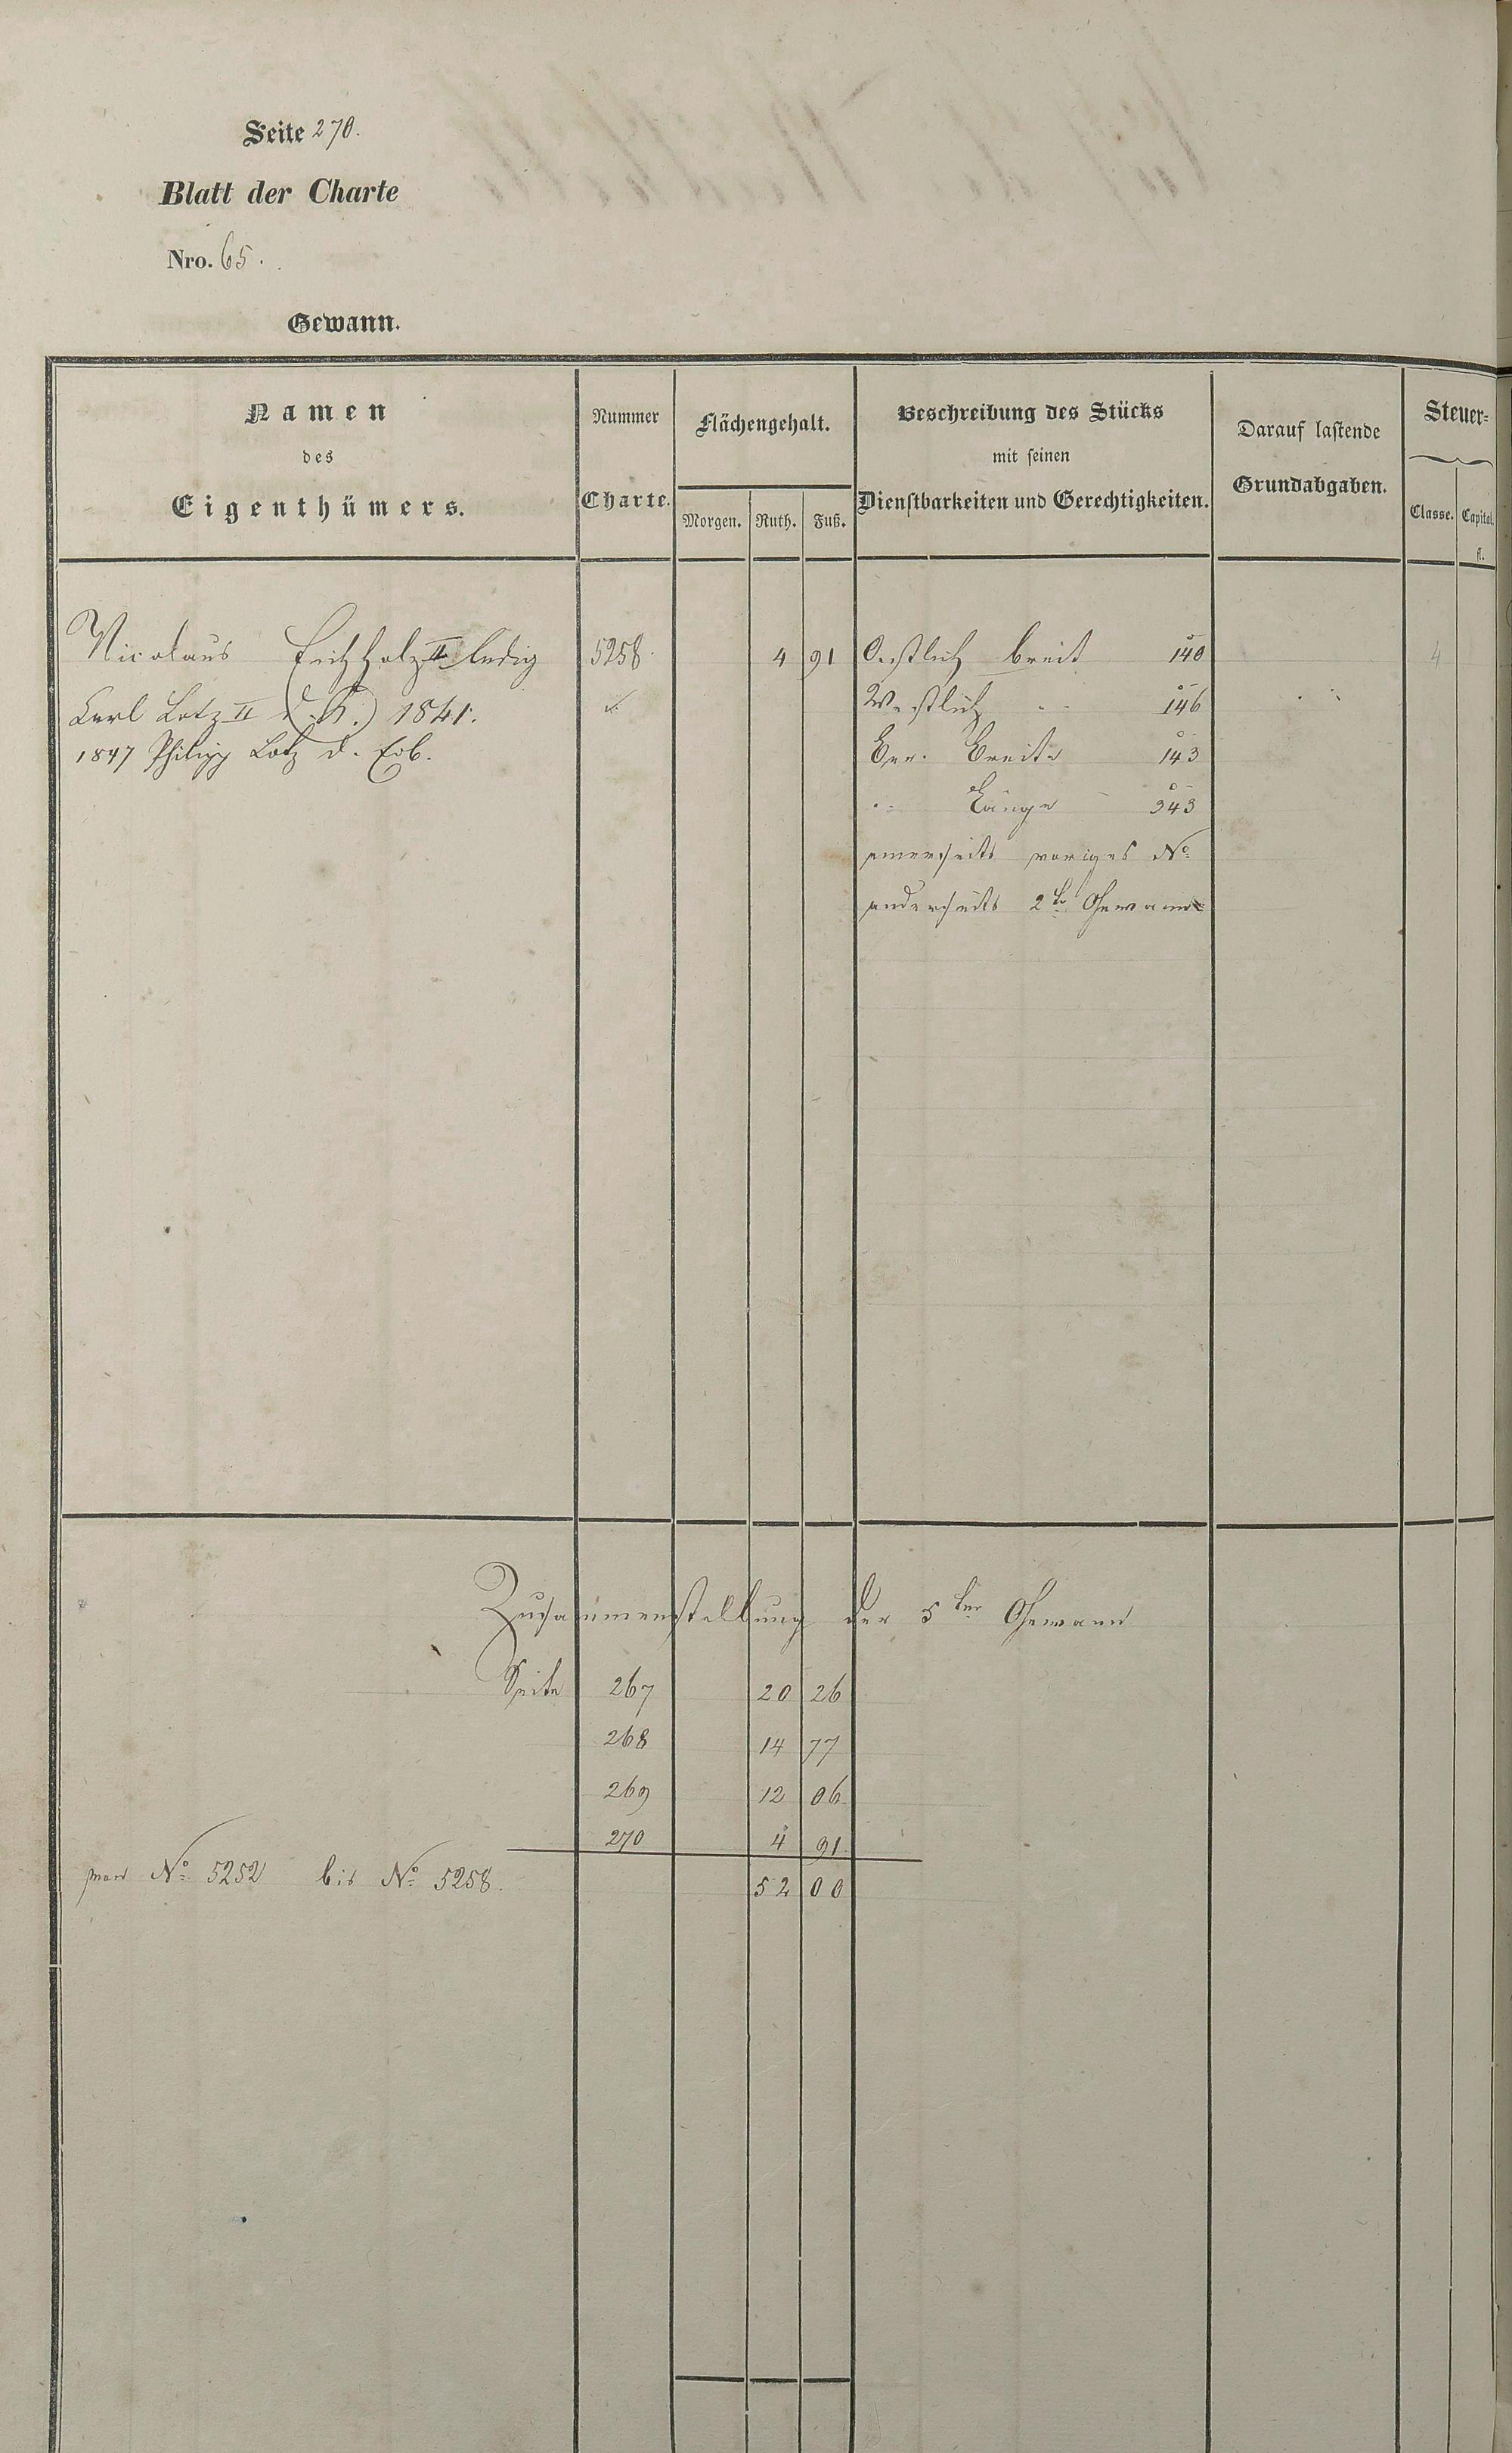 Seite 270.
Blatt der Charte
Nro. 65.
Gewann.
Namen
des
Eigenthümers.
Nummer
Charte.
Flächengehalt.
Morgen. Ruth. Fuß.
Beschreibung des Stücks
mit seinen
Dienstbarkeiten und Gerechtigkeiten.
Darauf lastende
Grundabgaben.
Steuer-
Classe. Capital.
fl.
Nicolaus II ledig 5258. 4 91 Oestlich breit 140 4
Carl Lotz II 1841. Westlich " 146
1847 Philipp Lotz d. Erb. Ger. Breite 143
" Länge 343
einerseits voriges No
anderseits 2te Gewann
Zusammenstellung der 5ten Gewann
Seite 267 20 26
268 14 77
269 12 06
270 4 91
von No 5252 bis No 5258. 52 00